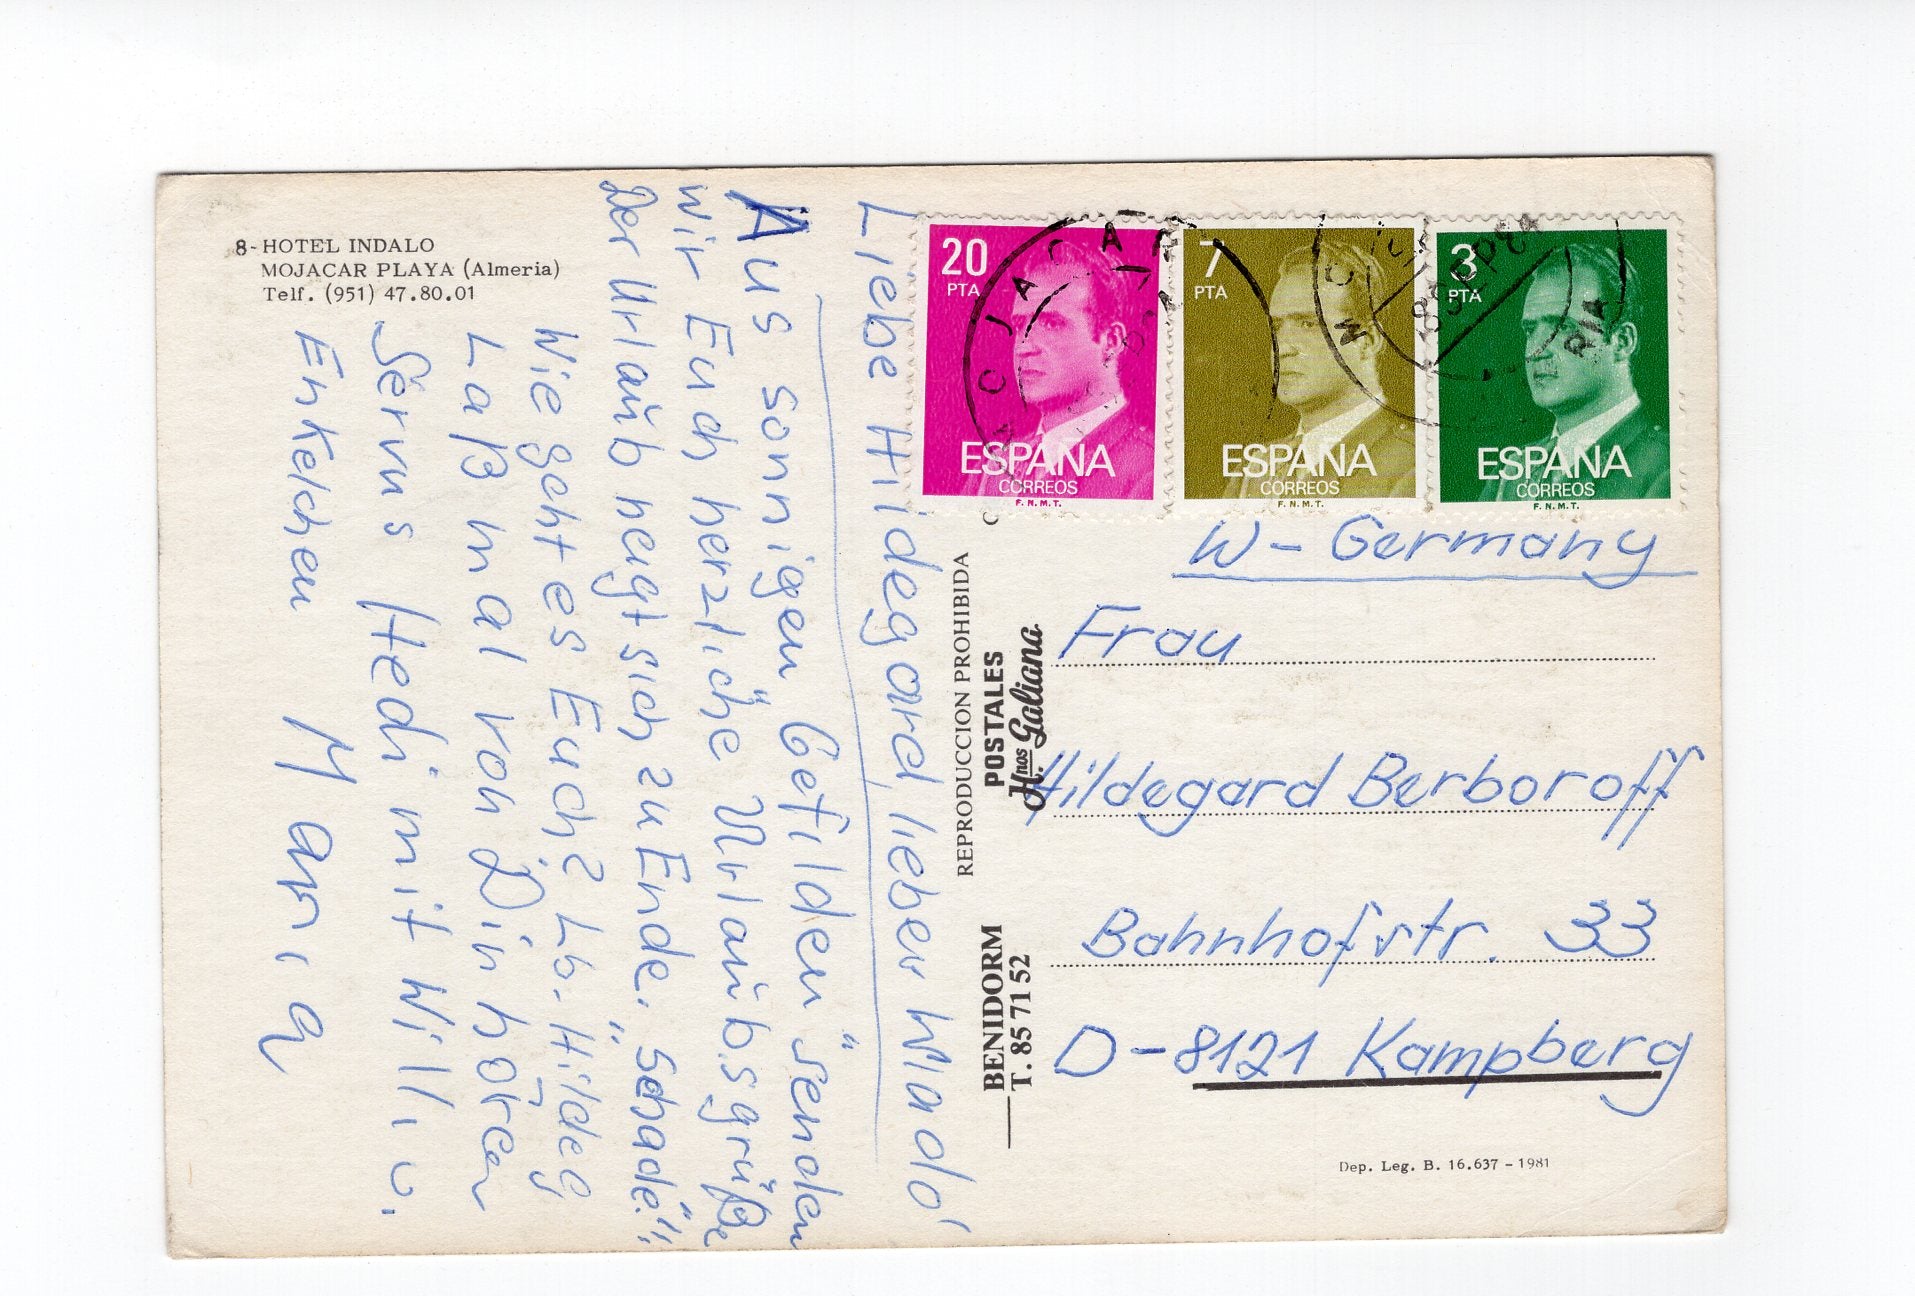 8-HOTEL INDALO
MOJACAR PLAYA (Almeria)
Telf. (951) 47.80.01
Liebe Hildegard, lieber Wlado'
Aus sonnigen Gefilden senden
wir Euch herzliche Urlaubsgrüße
Der Urlaub neigt sich zu Ende. "Schade"!
Wie geht es Euch? Lb. Hildeg
Laß mal von Dir hören
Servus Hedi mit Willi u.
Enkelchen Maria
20
PTA
ESPAÑA
CORREOS
F.N.M.T.
7
PTA
ESPAÑA
CORREOS
F.N.M.T.
3
PTA
ESPAÑA
CORREOS
F.N.M.T.
REPRODUCCION PROHIBIDA
POSTALES
Hnos Galiana
BENIDORM
T. 85 71 52
W-Germany
Frau
Hildegard Berboroff
Bahnhofstr. 33
D-8121 Kampberg
Dep. Leg. B. 16.637 - 1981